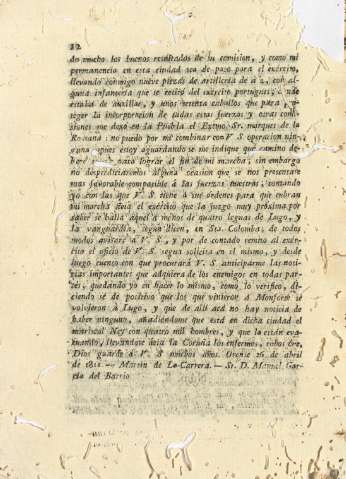 22
do mucho los buenos resultados de su comision, y como mi
permanencia en esta ciudad sea de paso para el exército,
llevando conmigo nueve piezas de artillería de á 2, con al-
guna infantería que se retiró del exército portugues,
estaba de auxiliar, y unos setenta caballos que para
teger la incorporacion de todas estas fuerzas, y otras comi-
siones que dexó en la Puebla el Exmo. Sr. marques de la
Romana: no puedo por mi combinar con V. S. operacion nin-
guna pues estoy aguardando se me indique que camino de-
beré para lograr el fin de mi marcha, sin embargo
no desperdiciaremos alguna ocasion que se nos presentare
mas favorable compatible á las fuerzas nuestras, contando
yo con las que V. S. tiene á mis órdenes para que cubran
mi marcha ácia el exército que la juzgo muy próxima por
saber se halla aquel á menos de quatro leguas de Lugo, y
la vanguardia, segun dicen, en Sta. Colomba, de todos
modos avisaré á V. S., y por de contado remito al exér-
cito el oficio de V. S. segun solicita en el mismo, y desde
luego cuento con que procurará V. S. anticiparme las noti-
cias importantes que adquiera de los enemigos en todas par-
tes, quedando yo en hacer lo mismo, como lo verifico, di-
ciendo sé de positivo que los que vinieron á Monforte se
volvieron á Lugo, y que de allí acá no hay noticia de
haber ninguno, añadiéndome que está en dicha ciudad el
mariscal Ney con quatro mil hombres, y que la están eva-
cuando, llevándose ácia la Coruña los enfermos, robos &c.
Dios guarde á V. S. muchos años. Orense 26 de abril
de 1811. — Martin de La-Carrera. — Sr. D. Manuel Gar-
cía del Barrio.